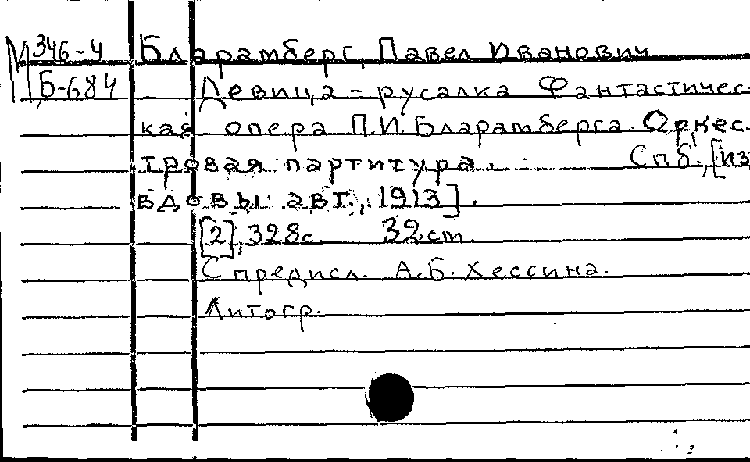 М 346-4 Бларамберг, Павел Иванович
Б-684 Девица-русалка Фантастичес-
кая опера П.И. Бларамберга. Оркес.
тровая партитура. Спб, [из
вдовы авт., 1913].
[2], 328с. 32cm
С предисл. А.Б. Хессина.
Литогр.